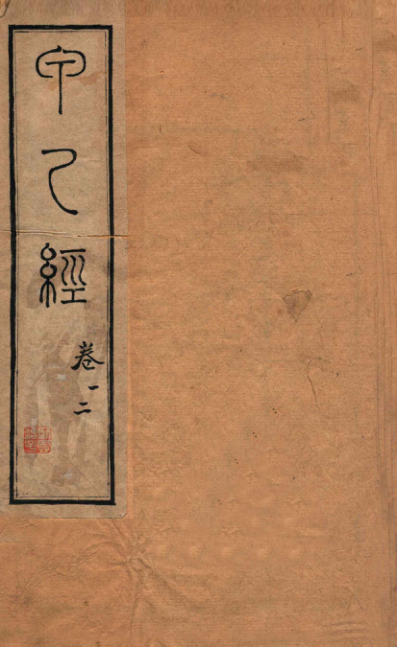 甲乙經
卷一二